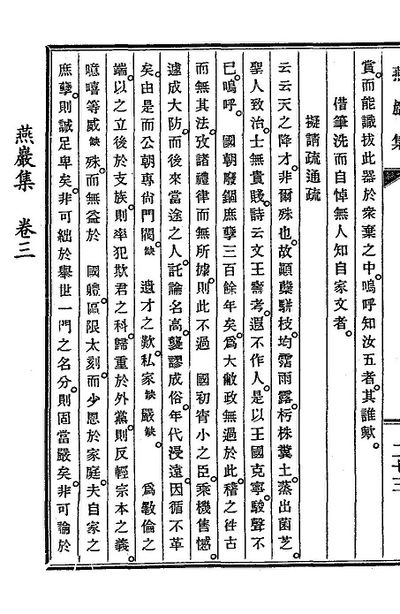 燕巖集
賞而能識拔此器於衆棄之中。嗚呼知汝五者。其誰歟。
借筆洗而自悼無人知自家文者。
擬請疏通疏
云云天之降才。非爾殊也。故顚蘖騈枝。均霑雨露。朽株糞土。蒸出菌芝。
聖人致治。士無貴賤。詩云文王壽考。遐不作人。是以王國克寧。駿聲不
已。嗚呼。 國朝廢錮庶孼三百餘年矣。爲大敝政無過於此。稽之往古
而無其法。攷諸禮律而無所據。則此不過 國初宵小之臣。乘機售憾。
遽成大防。而後來當途之人。託論名高。襲謬成俗。年代浸遠。因循不革
矣。由是而公朝專尙門閥。缺 遺才之歎。私家缺嚴缺。 爲斁倫之
端。以之立後於支族。則率犯欺君之科。歸重於外黨。則反輕宗本之義。
噫嘻等威缺殊。而無益於 國體。區限太刻。而少恩於家庭。夫自家之
庶孼。則誠足卑矣。非可絀於擧世。一門之名分。則固當嚴矣。非可論於
燕巖集 卷三